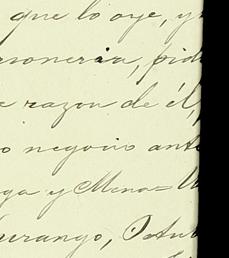 que lo oye, y
rsoneria, pid
e razon de él,
o negocio ante
ga y Mena=
urango, Octub